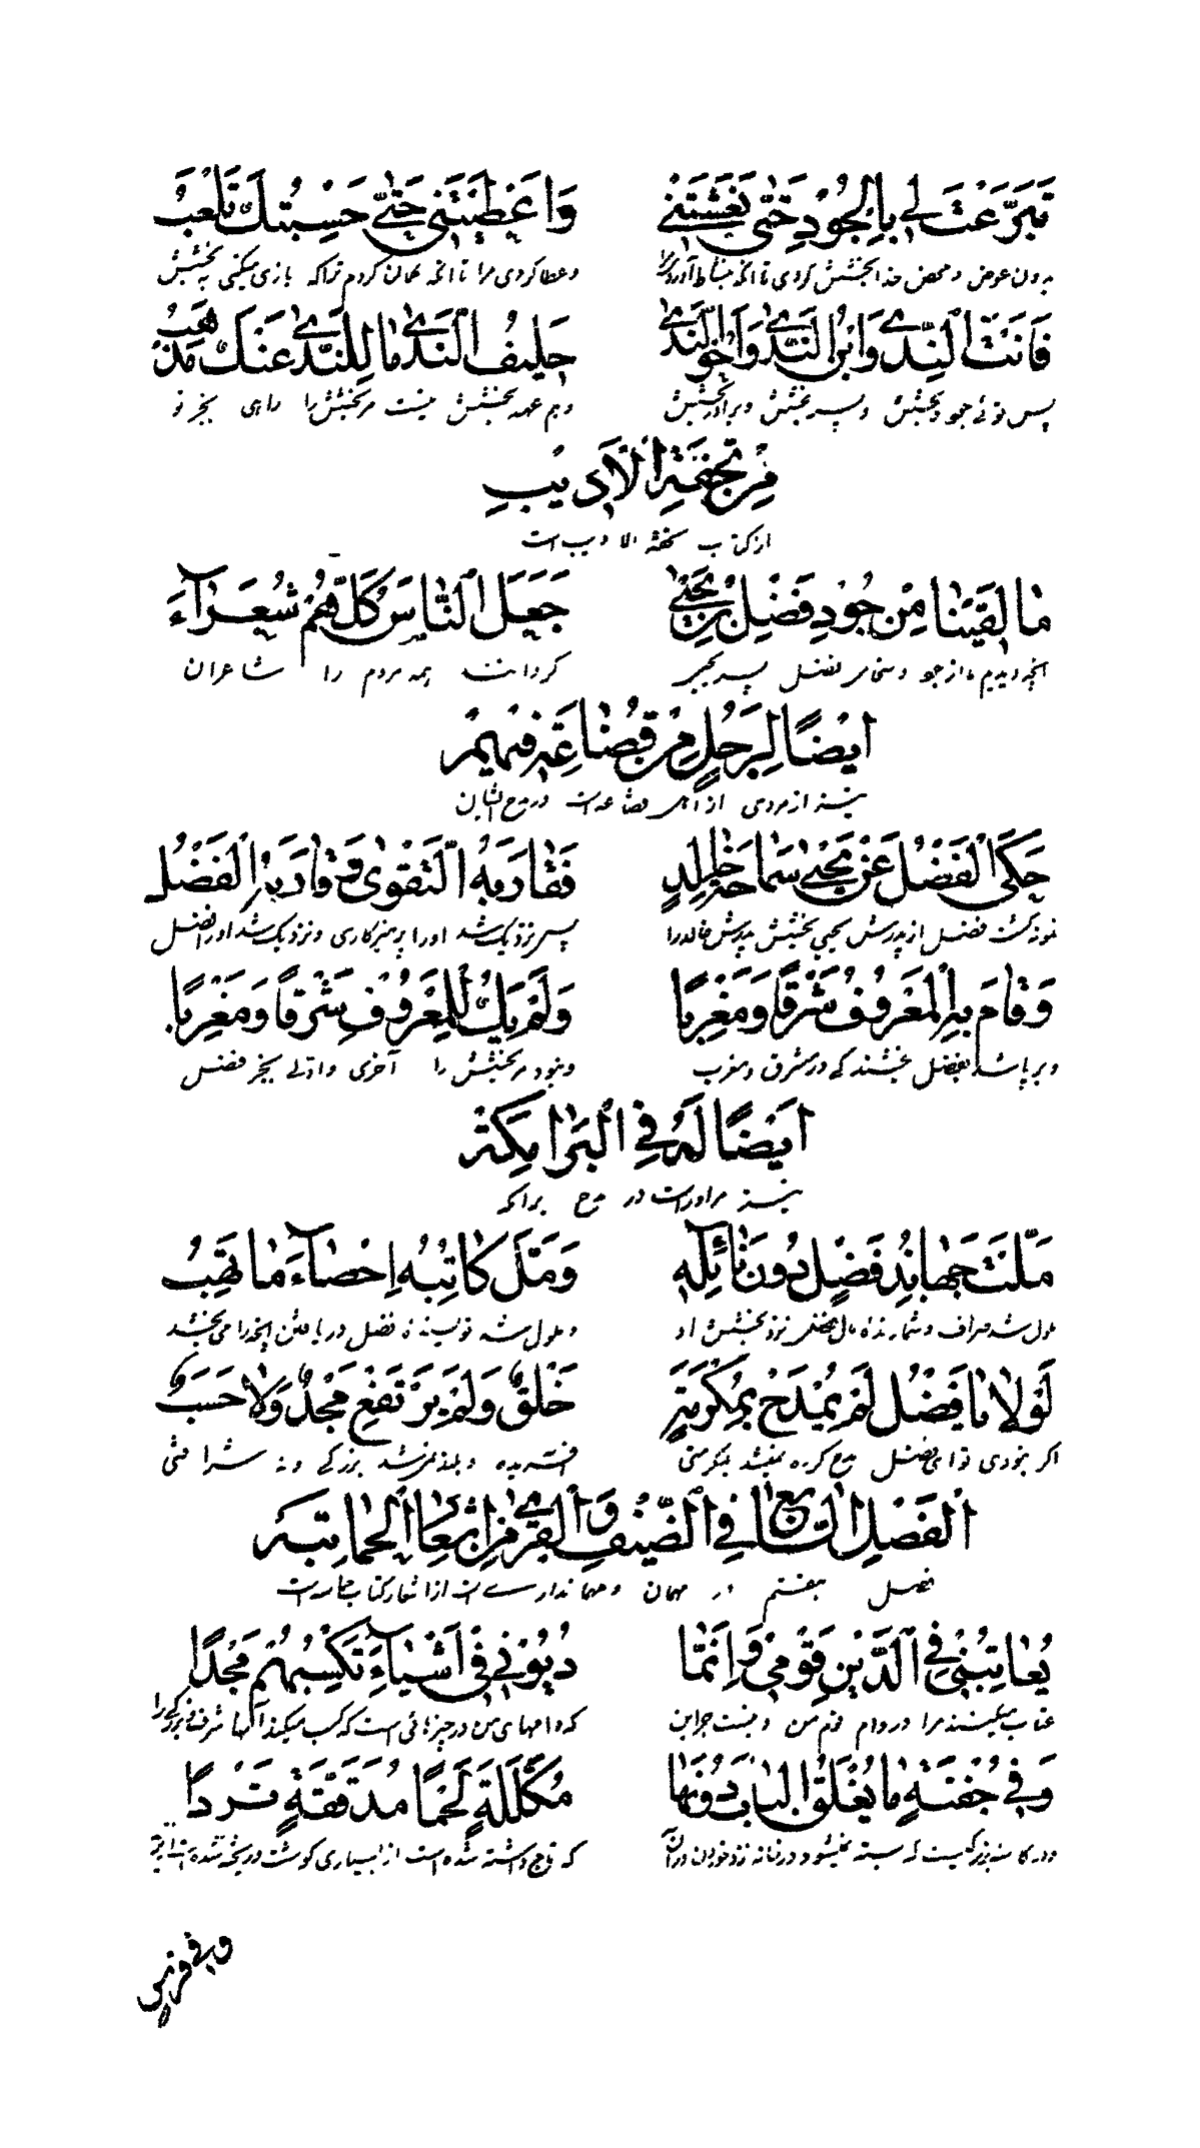 تَبَرَّعْتَ لِي بِالْجُودِ حَتَّى نَعَشْتَنِي وَاَعْطَيْتَنِي حَتَّى حَسِبْتُكَ تَلْعَبُ
بدون عوض و محض خدا بخشش کردی تا آنکه و عطا کردی مرا تا آنکه گمان کردم ترا که بازی میکنی به بخشش
فَاَنْتَ النَّدَى وَابْنُ النَّدَى وَاَخُو النَّدَى حَلِيفُ النَّدَى مَا لِلنَّدَى عَنْكَ مَذْهَبُ
پس توئی جود و بخشش و پسر بخشش و برادر بخشش و هم عهد بخشش نیست مر بخشش را راهی بجز تو
مِنْ تُحْفَةِ الْاَدِيبِ
از کتاب تحفة الادیب است
مَا لَقِينَا مِنْ جُودِ فَضْلِ بْنِ يَحْيَى جَعَلَ النَّاسَ كُلَّهُمْ شُعَرَآءَ
آنچه دیدیم ما از جود و سخای فضل پسر یحیی گردانند همه مردم را شاعران
اَيْضًا لِرَجُلٍ مِنْ قُضَاعَةَ فِيهِمْ
نیز از مردی از اهل قضاعه است در مدح ایشان
حَكَى الْفَضْلُ عَنْ يَحْيَى سَمَاحَةَ خَالِدٍ فَقَارَبَهُ التَّقْوَى وَقَارَبَهُ الْفَضْلُ
فضل از پدرش یحیی بخشش پدرش خالد را پس نزدیک شد او را پرهیزکاری و نزدیک شد او را فضل
وَقَامَ بِهِ الْمَعْرُوفُ شَرْقًا وَمَغْرِبًا وَلَمْ يَكُ لِلْمَعْرُوفِ شَرْقًا وَمَغْرِبًا
و برپا شد بفضل بخشندگی در مشرق و مغرب و نبود مر بخشش را آخری و اولی بجز فضل
اَيْضًا لَهُ فِي الْبَرَامِكَةِ
نیز مر او راست در مدح برامکه
مَلَّتْ جَهَابِذُ فَضْلٍ دُونَ نَائِلِهِ وَمَلَّ كَاتِبُهُ اِحْصَآءَ مَا يَهَبُ
ملول شد صراف و شمارنده مال فضل نزد بخشش او و ملول شد نویسنده فضل دریافتن آنچه را می بخشد
لَوْلَا يَا فَضْلُ لَمْ يُمْدَحْ بِمَكْرُمَةٍ خَلْقٌ وَلَمْ يَرْتَفِعْ مَجْدٌ وَلَا حَسَبُ
اگر نبودی تو ای فضل مدح کرده نمیشد بمکرمتی و بلند نمیشد بزرگی و نه شرافتی
اَلْفَصْلُ السَّابِعُ فِي الضَّيْفِ وَالْقِرَى مِنْ اَشْعَارِ الْحَمَاسَةِ
فصل هفتم در مهمان و مهمانداریست از اشعار کتاب حماسه است
يُعَاتِبُنِي فِي الدَّيْنِ قَوْمِي وَاِنَّمَا دُيُونِي فِي اَشْيَآءَ تَكْسِبُهُمْ مَجْدًا
عتاب میکنند مرا در وام قوم من و نیست جز این که وامهای من در چیزهائی است که کسب میکند آنها شرف و بزرگی را
وَفِي جَفْنَةٍ مَا يُغْلَقُ الْبَابُ دُونَهَا مُكَلَّلَةٍ لَحْمًا مُدَفَّقَةٍ ثُرْدًا
و در کاسه بزرگیست که بسته نمیشود در خانه نزد خوردن در آن که تاج داشته شده است از بسیاری گوشت و ریخته شده
وَفِي فَرَسٍ